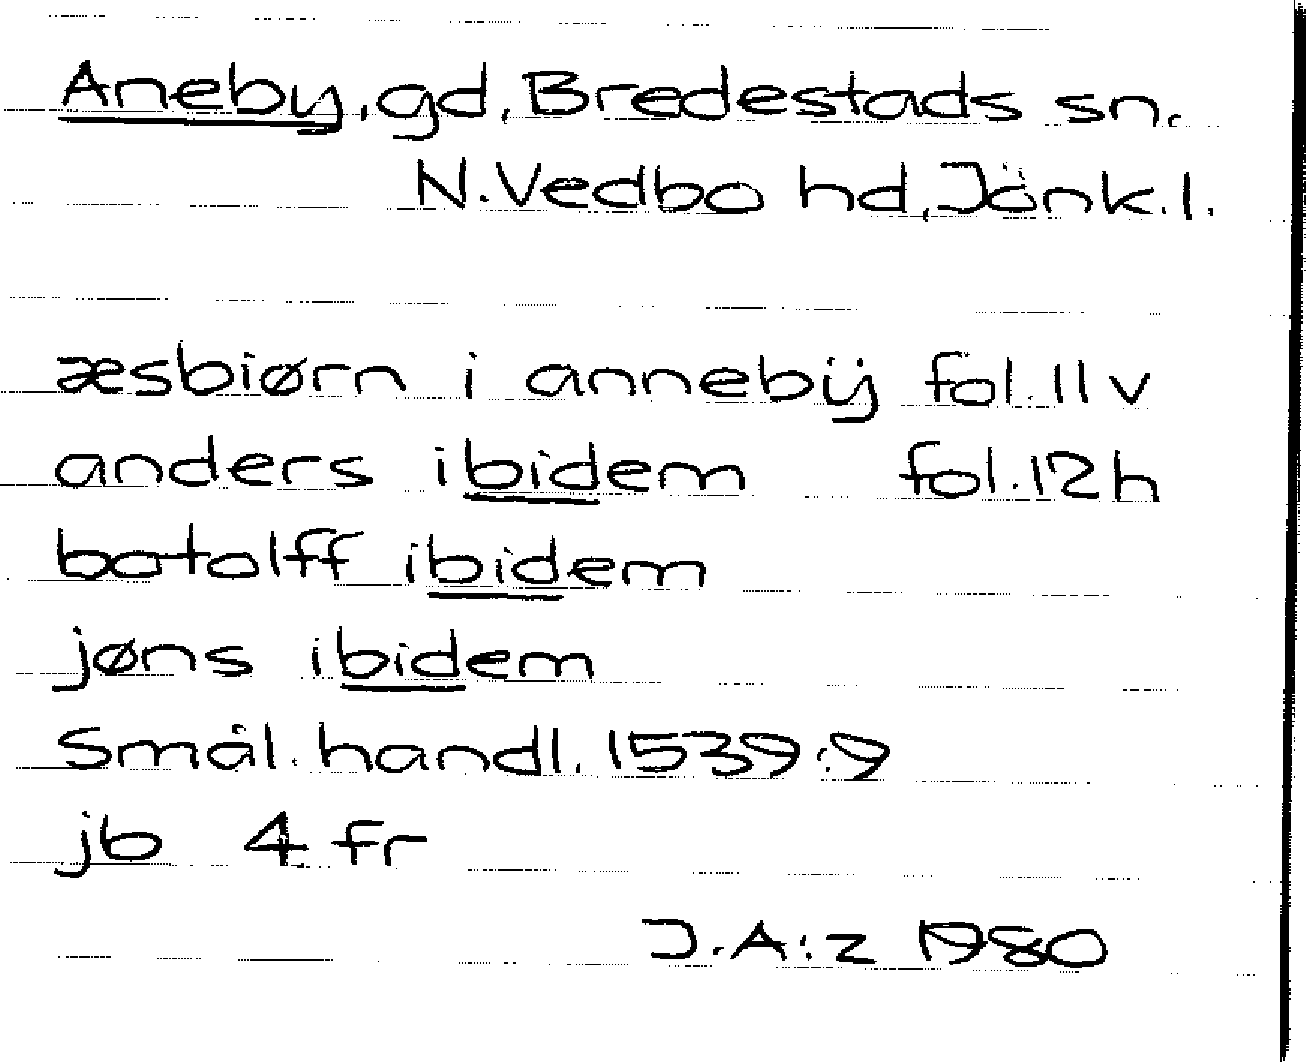 Aneby, gd, Bredestads sn.
N. Vedbo hd, Jönk. l.
æsbiørn i annebÿ fol. 11 v
anders ibidem fol. 12 h
botolff ibidem
jøns ibidem
Smål. handl. 1539:9
jb 4 fr
J.A:z 1980